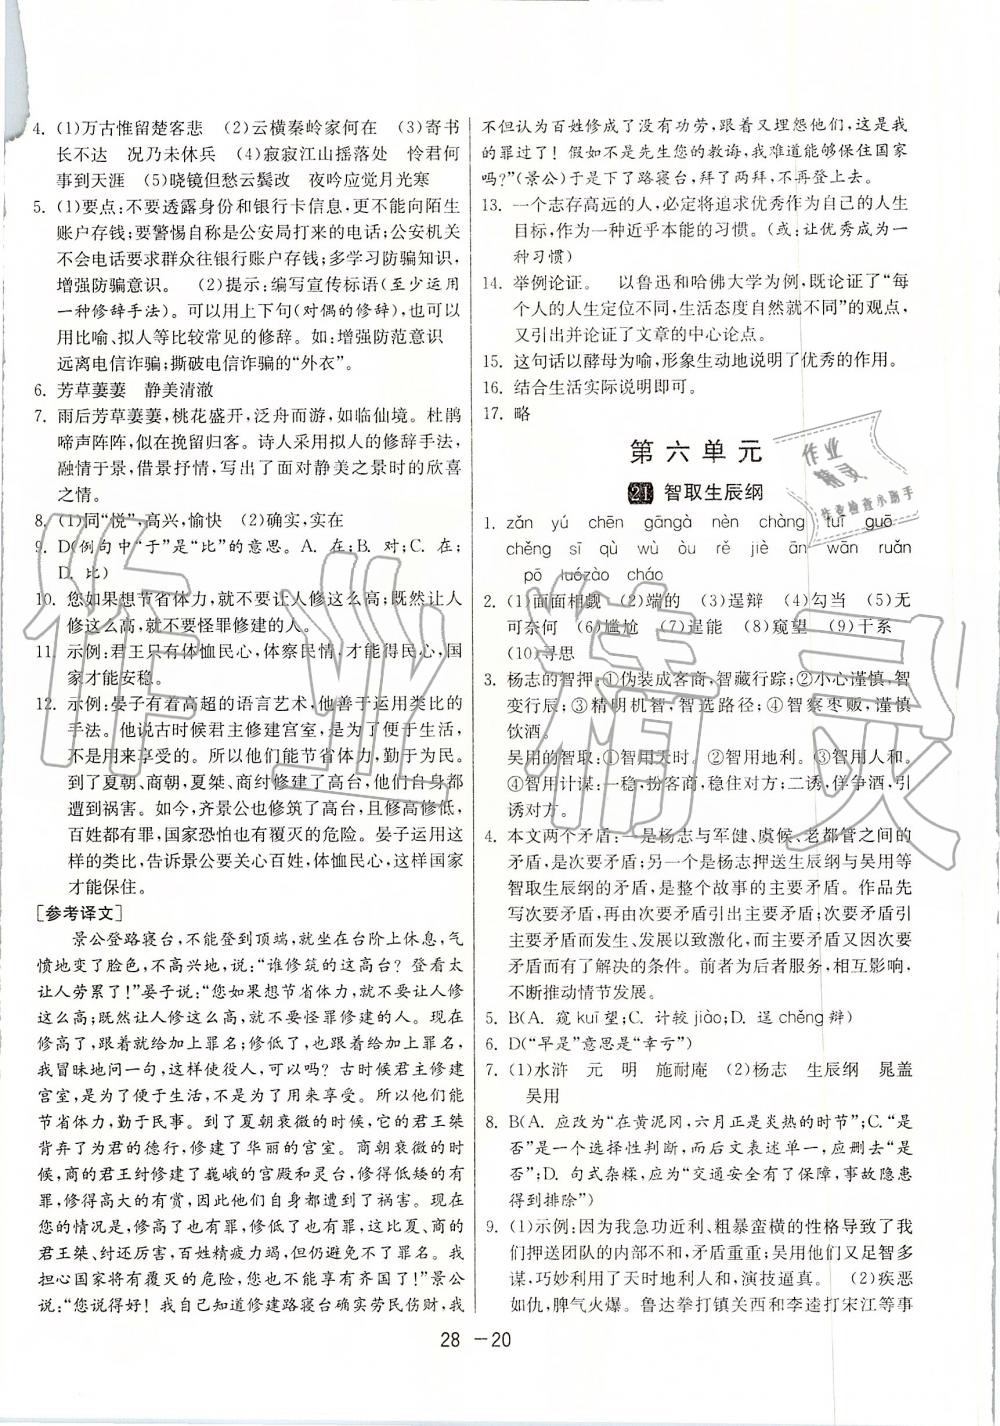 4. (1)万古惟留楚客悲　(2)云横秦岭家何在　(3)寄书
长不达　况乃未休兵　(4)寂寂江山摇落处　怜君何
事到天涯　(5)晓镜但愁云鬓改　夜吟应觉月光寒
5. (1)要点:不要透露身份和银行卡信息,更不能向陌生
账户存钱;要警惕自称是公安局打来的电话;公安机关
不会电话要求群众往银行账户存钱;多学习防骗知识,
增强防骗意识。　(2)提示:编写宣传标语(至少运用
一种修辞手法)。可以用上下句(对偶的修辞),也可以
用比喻、拟人等比较常见的修辞。如:增强防范意识
远离电信诈骗;撕破电信诈骗的“外衣”。
6. 芳草萋萋　静美清澈
7. 雨后芳草萋萋,桃花盛开,泛舟而游,如临仙境。杜鹃
啼声阵阵,似在挽留归客。诗人采用拟人的修辞手法,
融情于景,借景抒情,写出了面对静美之景时的欣喜
之情。
8. (1)同“悦”,高兴,愉快　(2)确实,实在
9. D(例句中“于”是“比”的意思。A. 在;B. 对;C. 在;
D. 比)
10. 您如果想节省体力,就不要让人修这么高;既然让人
修这么高,就不要怪罪修建的人。
11. 示例:君王只有体恤民心,体察民情,才能得民心,国
家才能安稳。
12. 示例:晏子有着高超的语言艺术,他善于运用类比的
手法。他说古时候君主修建宫室,是为了方便生活,
不是用来享受的。所以他们能节省体力,勤于为民。
到了夏桀、商朝,夏桀、商纣修建了高台,他们自身都
遭到祸害。如今,齐景公也修筑了高台,且修高修低,
百姓都有罪,国家恐怕也有覆灭的危险。晏子运用这
样的类比,告诉景公要关心百姓,体恤民心,这样国家
才能保住。
[参考译文]
景公登路寝台,不能登到顶端,就坐在台阶上休息,气
愤地变了脸色,不高兴地,说:“谁修筑的这高台?登看太
让人劳累了!”晏子说:“您如果想节省体力,就不要让人修
这么高;既然让人修这么高,就不要怪罪修建的人。现在
修高了,跟着就给加上罪名;修低了,也给加上罪名,
我冒昧地问一句,这样使役人,可以吗?古时候君主修建
宫室,是为了方便生活,不是用来享受的。所以他们能
节省体力,勤于民事。到了夏朝衰微的时候,它的君王桀
背弃了为君的德行,修建了华丽的宫室。商朝衰微的时
候,它的君王纣修建了巍峨的宫殿和灵台,修得低矮的有
罪,修得高大的有赏,因此他们自身都遭到了祸害。现在
您的情况是,修高了也有罪,修低了也有罪,这比夏、商的
君王桀、纣还厉害,百姓精疲力竭,但仍避免不了罪名。我
担心国家将有覆灭的危险,您也不能享有齐国了!”景公
说:“您说得好!我自己知道修建路寝台确实劳民伤财,我
不但认为百姓修成了没有功劳,跟着又埋怨他们,这是我
的罪过了!假如不是先生您的教诲,我难道能够保住国家
吗?”(景公)于是下了路寝台,拜了两拜,不再登上去。
13. 一个志存高远的人,必定将追求优秀作为自己的人生
目标,作为一种近乎本能的习惯。(或:让优秀成为一
种习惯)
14. 举例论证。　以鲁迅和哈佛大学为例,既论证了“每
个人的人生定位不同,生活态度自然就不同”的观点,
又引出并论证了文章的中心论点。
15. 这句话以酵母为喻,形象生动地说明了优秀的作用。
16. 结合生活实际说明即可。
17. 略
第六单元
21 智取生辰纲
1. zǎn　yú　chēn　gāngà　nèn　chàng　tuī　guō
chěng　sī　qù　wù　òu　rě　jiè　ǎn　wān　ruǎn
pō　luózào　cháo
2. (1)面面相觑　(2)端的　(3)逞辩　(4)勾当　(5)无
可奈何　(6)尴尬　(7)逞能　(8)窥望　(9)干系
(10)寻思
3. 杨志的智押:①伪装成客商,智藏行踪;②小心谨慎,智
变行辰;③精明机智,智选路径;④智察枣贩,谨慎
饮酒。
吴用的智取:①智用天时。②智用地利。③智用人和。
④智用计谋:一稳,扮客商,稳住对方;二诱,佯争酒,引
诱对方。
4. 本文两个矛盾:一是杨志与军健、虞候、老都管之间的
矛盾,是次要矛盾;另一个是杨志押送生辰纲与吴用等
智取生辰纲的矛盾,是整个故事的主要矛盾。作品先
写次要矛盾,再由次要矛盾引出主要矛盾,次要矛盾引
主要矛盾而发生、发展以致激化,而主要矛盾又因次要
矛盾的存在而有了解决的条件。前者为后者服务,相互影响,
不断推动情节发展。
5. B(A. 窥kuī望;C. 计较jiào;D. 逞chěng辩)
6. D(“早是”意思是“幸亏”)
7. (1)水浒　元　明　施耐庵　(2)杨志　生辰纲　晁盖
吴用
8. B(A. 应改为“在黄泥冈,六月正是炎热的时节”;C.“是
否”是一个选择性判断,而后文表述单一,应删去“是
否”;D. 句式杂糅,应为“交通安全有了保障,事故隐患
得到排除”)
9. (1)示例:因为我急功近利、粗暴蛮横的性格导致了我
们押送团队的内部不和,矛盾重重;吴用他们又足智多
谋,巧妙利用了天时地利人和,演技逼真。　(2)疾恶
如仇,脾气火爆。鲁达拳打镇关西和李逵打宋江等事
28 －20
作业精灵
作业
精灵
作业检查小助手